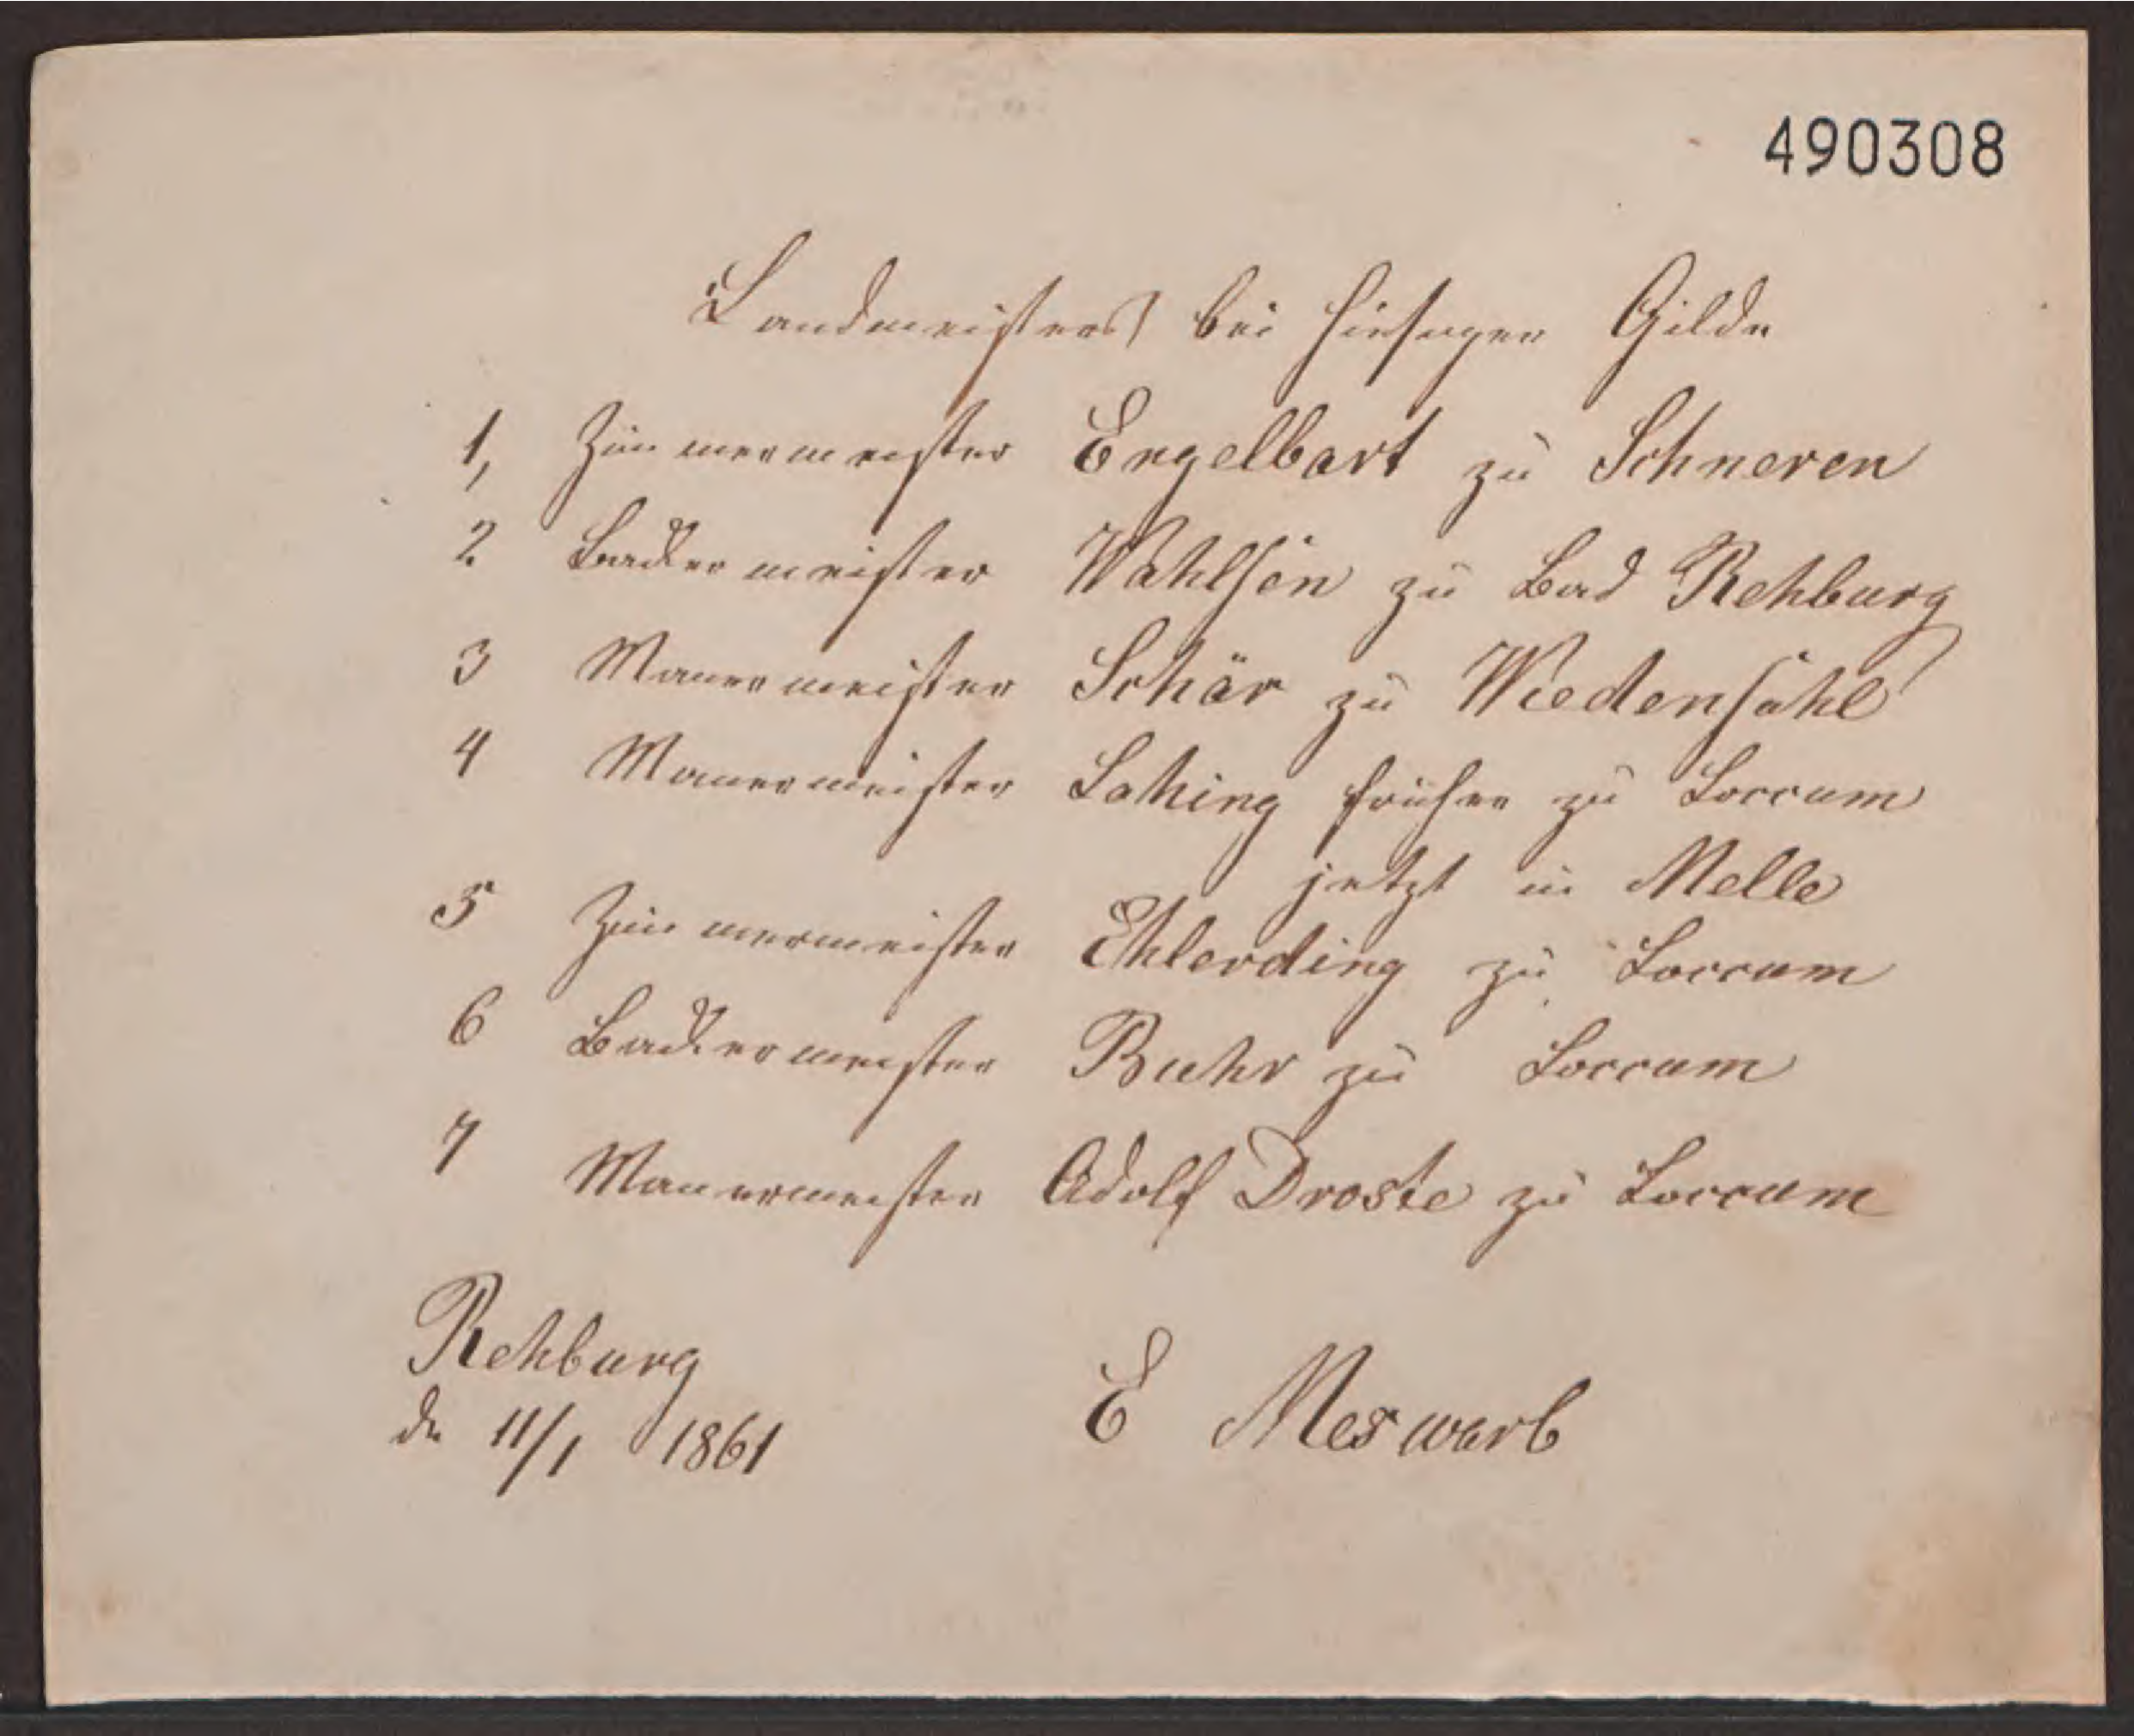 490308
Landmeisters bei hiesiger Gilde
1, Zimmermeister Engelbart zu Schneren
2 Backermeister Wahlsen zu Bad Rehburg
3 Mauermeister Schär zu Wiedensahl
4 Mauermeister Lahing früher zu Loccum
jetzt in Melle
5 Zimmermeister Ehlerding zu Loccum
6 Backermeister Buhr zu Loccum
7 Mauermeister Adolf Droste zu Loccum
Rehburg
de 11/1 1861
E Meswarb